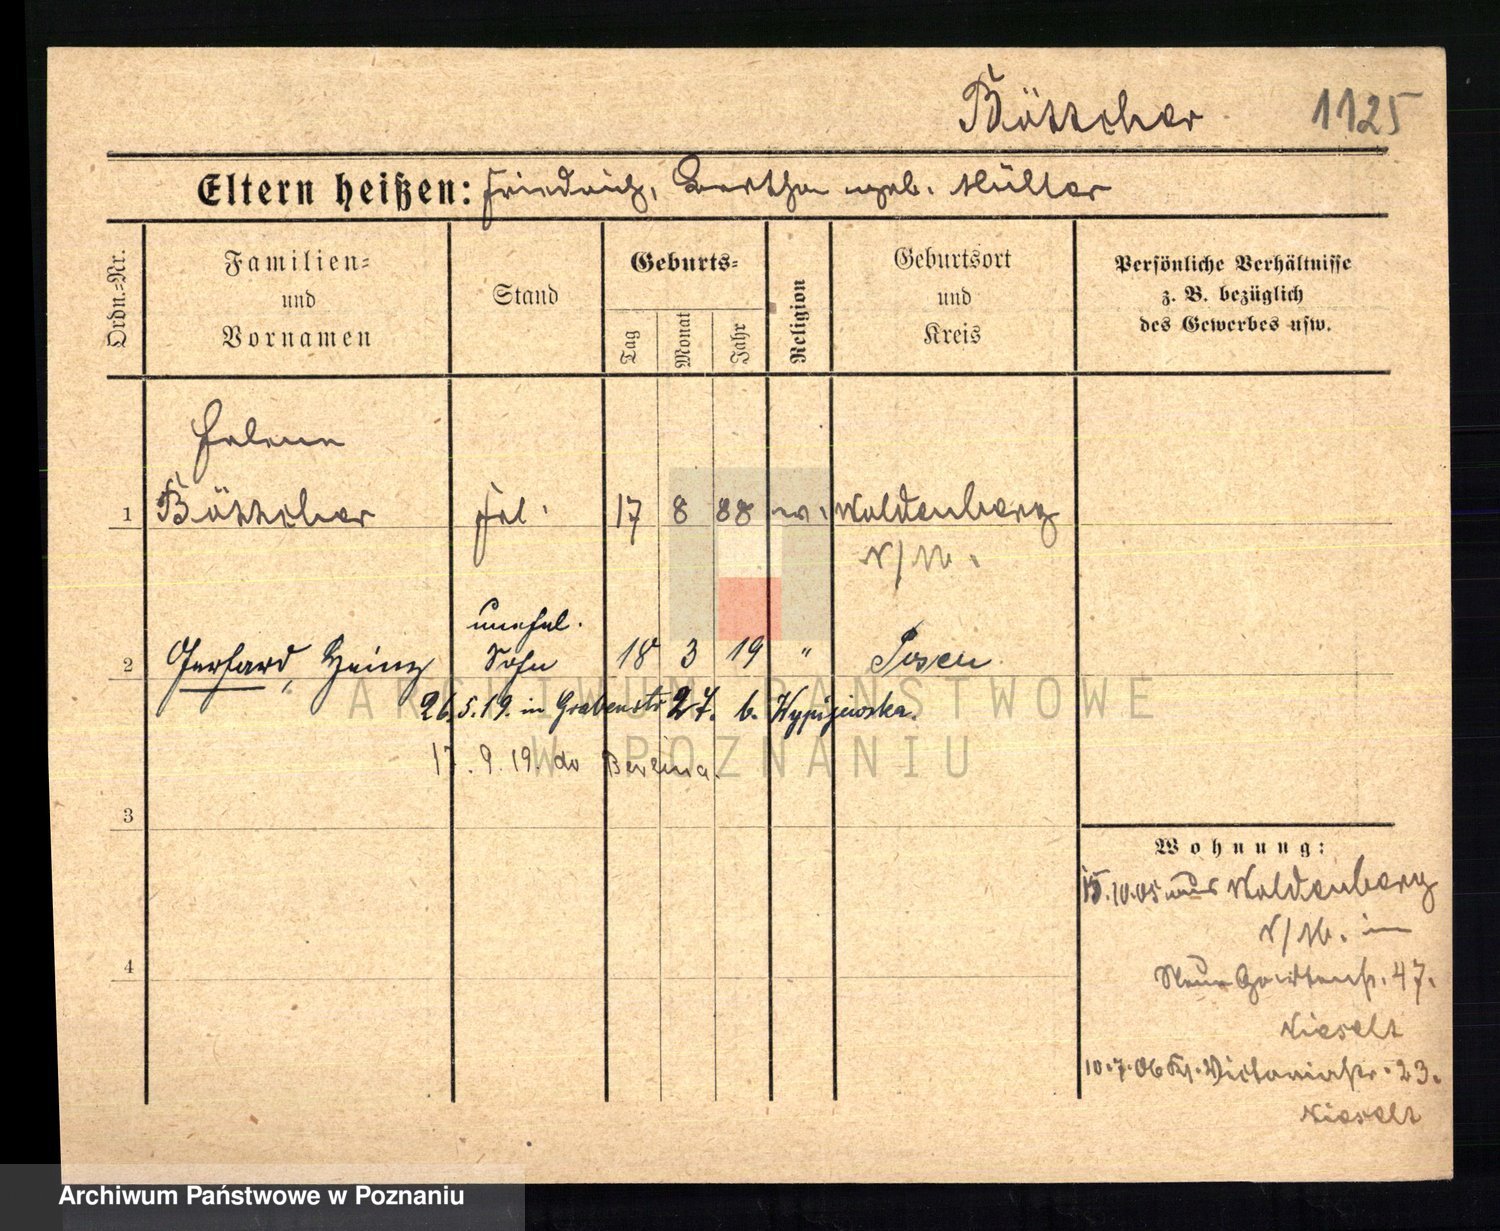 Böttcher 1125
Eltern heißen: Friedrich, Bertha geb. Müller
Ordn.-Nr.
Familien-
und
Vornamen
Stand
Geburts-
Tag
Monat
Jahr
Religion
Geburtsort
und
Kreis
Persönliche Verhältnisse
z. B. bezüglich
des Gewerbes usw.
Helene
1 Böttcher Frl. 17 8 88 ev. Woldenberg
N/M.
unehel.
2 Gerhard, Heinz Sohn 18 3 19 " Posen
26.5.19. in Grabenstr 27. b.
17.9.19. do Berlina.
3
4
Wohnung:
15.10.05 aus Woldenberg
N/M. in
Neue Gartenstr. 47.
Nieselt
10.7.06 Kl. Victoriastr. 23.
Nieselt
ARCHIWUM PAŃSTWOWE
W POZNANIU
Archiwum Państwowe w Poznaniu